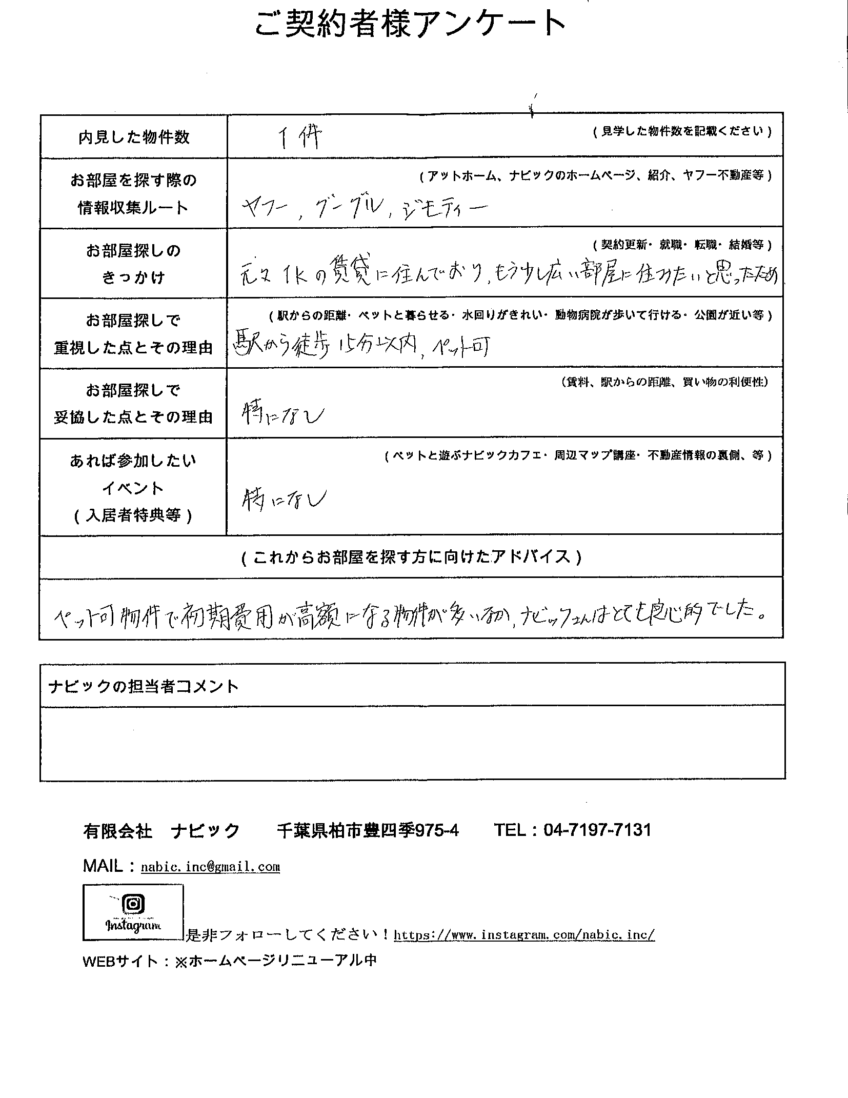 ご契約者様アンケート
内見した物件数
(見学した物件数を記載ください)
1件
お部屋を探す際の
情報収集ルート
(アットホーム、ナビックのホームページ、紹介、ヤフー不動産等)
ヤフー, グーグル, ジモティー
お部屋探しの
きっかけ
(契約更新・就職・転職・結婚等)
元々1Kの賃貸に住んでおり,もう少し広い部屋に住みたいと思ったため
お部屋探しで
重視した点とその理由
(駅からの距離・ペットと暮らせる・水回りがきれい・動物病院が歩いて行ける・公園が近い等)
駅から徒歩15分以内, ペット可
お部屋探しで
妥協した点とその理由
(賃料、駅からの距離、買い物の利便性)
特になし
あれば参加したい
イベント
(入居者特典等)
(ペットと遊ぶナビックカフェ・周辺マップ講座・不動産情報の裏側、等)
特になし
(これからお部屋を探す方に向けたアドバイス)
ペット可物件で初期費用が高額になる物件が多いなか,ナビックさんはとても良心的でした。
ナビックの担当者コメント
有限会社 ナビック 千葉県柏市豊四季975-4 TEL:04-7197-7131
MAIL:nabic.inc@gmail.com
Instagram
是非フォローしてください!https://www.instagram.com/nabic.inc/
WEBサイト:※ホームページリニューアル中